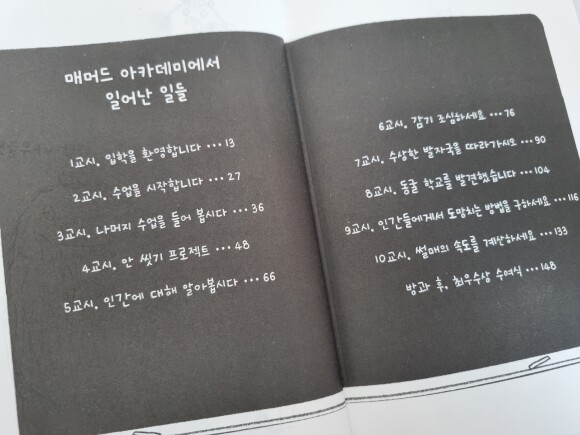 매머드 아카데미에서
일어난 일들
1교시. 입학을 환영합니다 ••• 13
2교시. 수업을 시작합니다 ••• 27
3교시. 나머지 수업을 들어 봅시다 ••• 36
4교시. 안 씻기 프로젝트 ••• 48
5교시. 인간에 대해 알아봅시다 ••• 66
6교시. 감기 조심하세요 ••• 76
7교시. 수상한 발자국을 따라가시오 ••• 90
8교시. 동굴 학교를 발견했습니다 ••• 104
9교시. 인간들에게서 도망치는 방법을 구하세요 ••• 116
10교시. 썰매의 속도를 계산하세요 ••• 133
방과 후. 최우수상 수여식 ••• 148